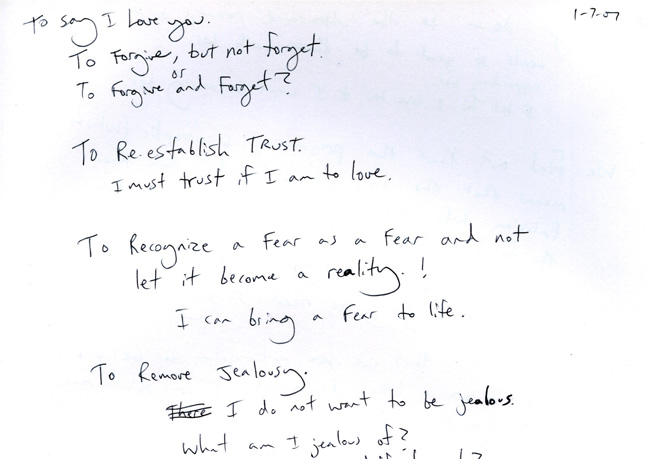 1-7-07
To say I Love you.
To Forgive, but not forget.
or
To Forgive and Forget?
To Re-establish TRUST.
I must trust if I am to love.
To Recognize a Fear as a Fear and not
let it become a reality.!
I can bring a Fear to life.
To Remove Jealousy.
There I do not want to be jealous.
What am I jealous of?